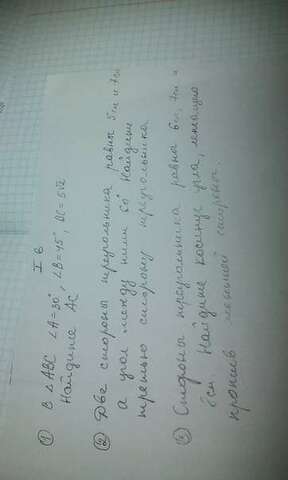 I в
① В △ABC ∠A=30°, ∠B=45°, BC=5√2
Найдите AC
② Две стороны треугольника равны 5см и 7см
а угол между ними 60° Найдите
третью сторону треугольника
③ Стороны треугольника равны 6см, 7см и
8см. Найдите косинус угла, лежащего
против меньшей стороны